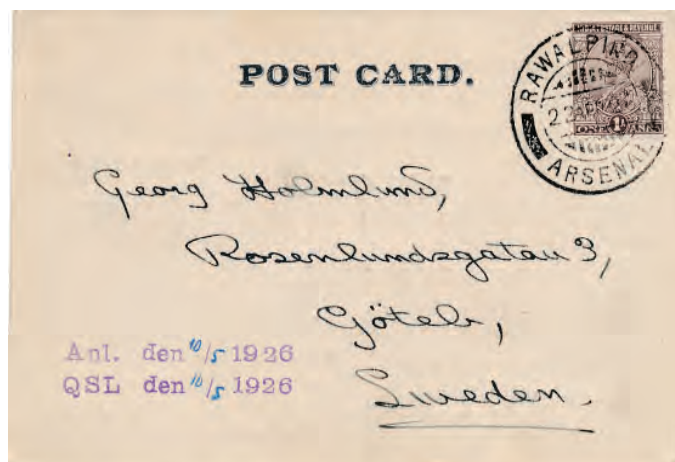 POST CARD.
RAWALPINDI
22 APR
ARSENAL
ONE ANNA
Georg Holmlund,
Rosenlundsgatan 3,
Göteb,
Sweden.
Anl. den 10/5 1926
QSL den 10/5 1926